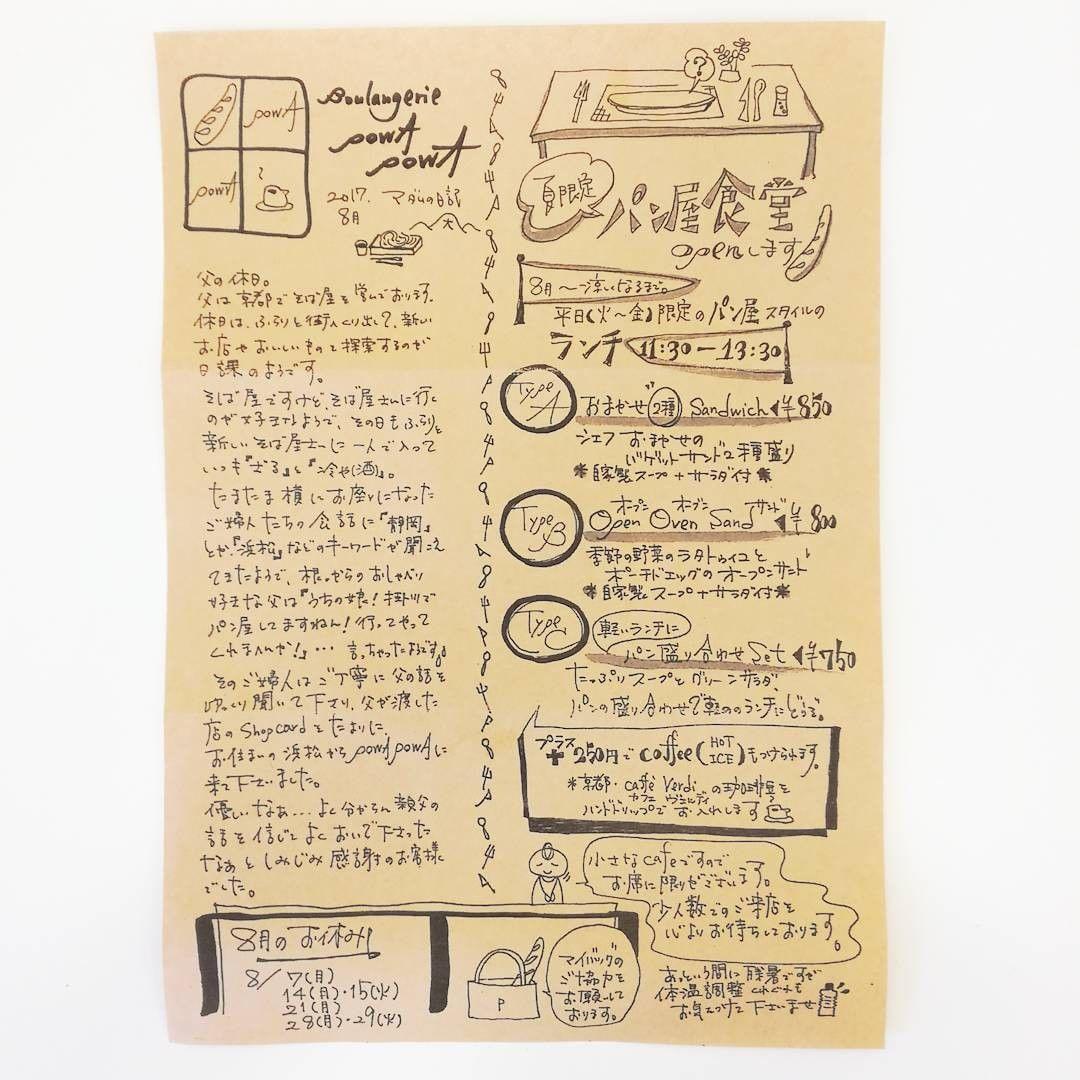 powA
powA
Boulangerie
powA
powA
2017. マダムの日記
8月
大
父の休日。
父は京都でそば屋を営んでおります。
休日は、ふらりと街へくり出して、新しい
お店やおいしいものを探索するのが
日課のようです。
そば屋ですけど、そば屋さんに行く
のが好きなようで、その日もふらりと
新しいそば屋さんに一人で入って
いつも『ざる』と『冷や(酒)』。
たまたま横にお座りになった
ご婦人たちの会話に『静岡』
とか『浜松』などのキーワードが聞こえ
てきたようで、根っからのおしゃべり
好きな父は『うちの娘!掛川で
パン屋してますねん!行ってやって
くれませんか!』… 言っちゃったようです。
そのご婦人はご丁寧に父の話を
ゆっくり聞いて下さり、父が渡した
店のShopcardをたよりに、
お住まいの浜松からpowApowAに
来て下さいました。
優しいなぁ… よく分からん親父の
話を信じてよくおいで下さった
なぁとしみじみ感謝のお客様
でした。
8月のお休み
8/7(月)
14(月)・15(火)
21(月)
28(月)・29(火)
P
マイバックの
ご協力を
お願いして
おります。
?
夏限定
パン屋食堂
openします
8月〜涼しくなるまで。
平日(火〜金)限定のパン屋スタイルの
ランチ 11:30-13:30
Type A
おまかせ2種 Sandwich ¥850
シェフおまかせの
バゲットサンド2種盛り
*自家製スープ+サラダ付*
Type B
オープン オーブン サンド
Open Oven Sand ¥800
季節の野菜のラタトゥイユと
ポーチドエッグのオープンサンド
*自家製スープ+サラダ付*
Type C
軽いランチに
パン盛り合わせ Set ¥750
たっぷりスープとグリーンサラダ、
パンの盛り合わせで軽めのランチにどうぞ。
プラス
+250円でcoffee(HOT ICE)もつけられます。
*京都・caffè Verdiの珈琲豆を
カフェ ヴェルディ
ハンドドリップでお入れします
小さなcafeですので
お席に限りがございます。
少人数でのご来店を
心よりお待ちしております。
あっという間に酷暑ですが
体温調整くれぐれも
お気をつけて下さいませ